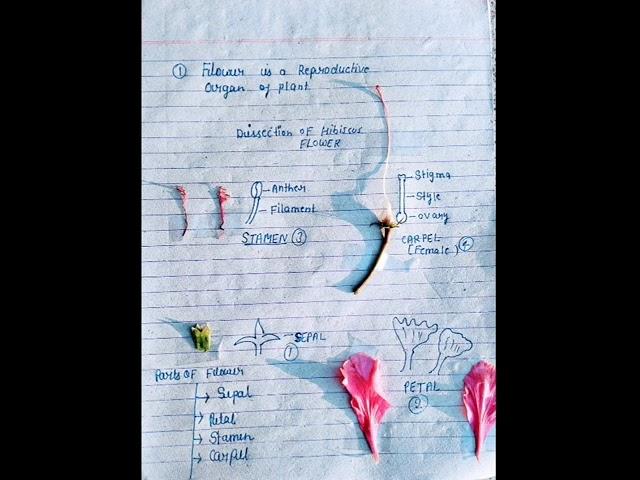 ① Flower is a Reproductive
Organ of plant
Dissection OF Hibiscus
FLOWER
Anther
Filament
STAMEN ③
Stigma
Style
ovary
CARPEL
(Female) ④
SEPAL
①
PETAL
②
Parts OF Flower
→ Sepal
→ Petal
→ Stamen
→ Carpel